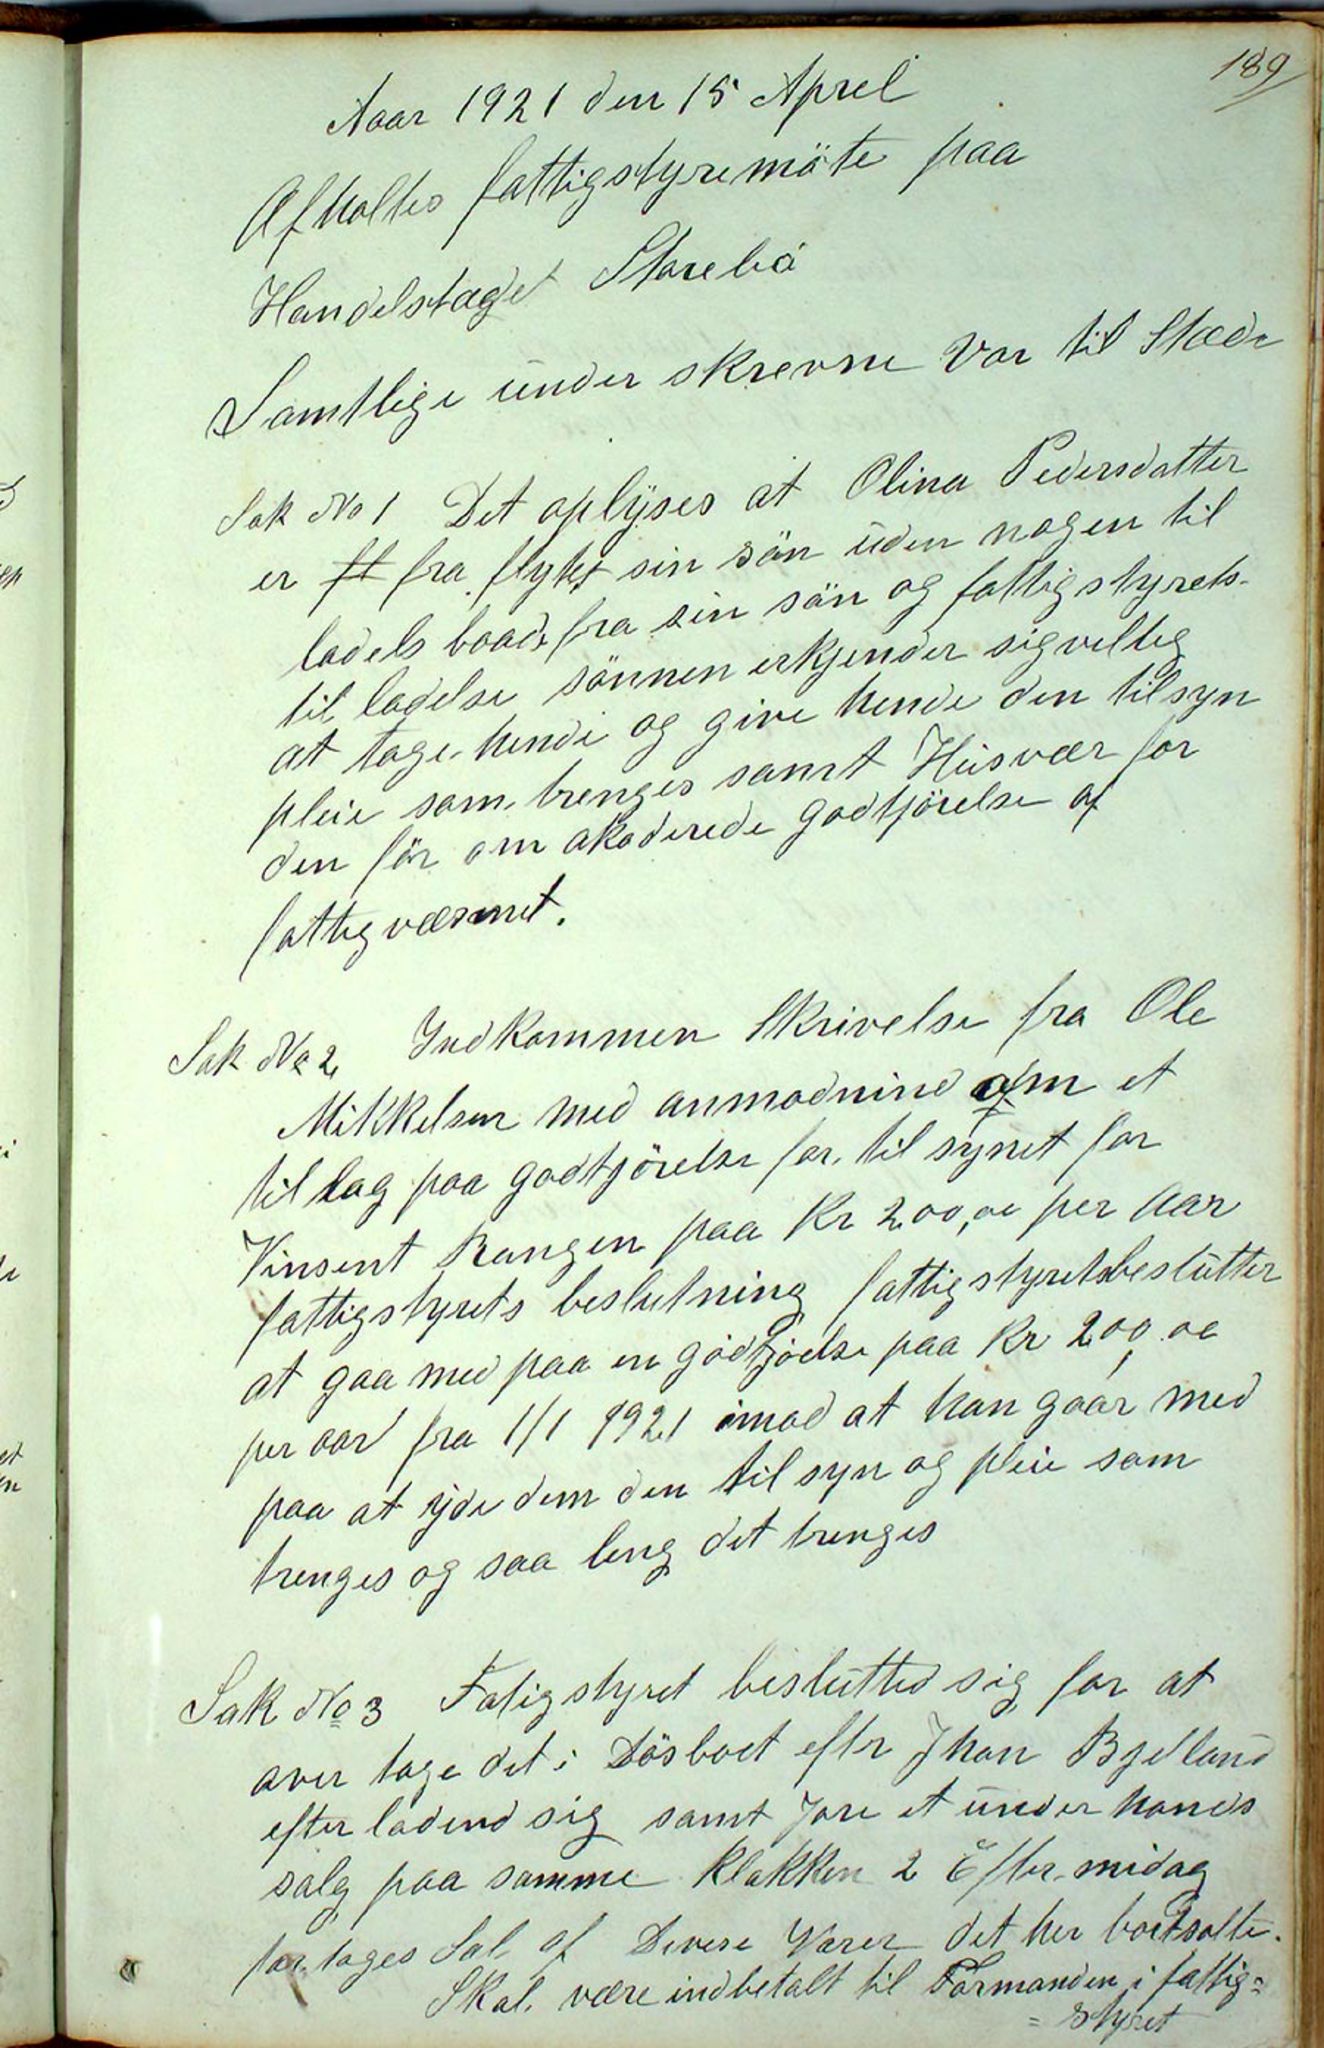 189
Aaar 1921 den 15 Aprel
Afholtes fattigstyremöte paa
Handelstaget Storebö
Samtlige under skrevne Var til Stæde
Sak No 1 Det oplyses at Olina Pedersdatter
er ft fra flytet sin sön uden nogen til
ladels baade fra sin sön og fattigstyrets
til ladelse sönnen erkjender sig veltig
at tage hende og give hende den tilsyn
pleie som trenges samt Husvær for
den för om akoderede godtjörelse af
fattigvæsenet.
Sak No 2 Indkommen Skrivelse fra Ole
Mikkelsen med anmodnind om et
tillag paa godtjörelse for tilsynet for
Vinsent Rangen paa Kr 200,00 per Aar
fattigstyrets beslutning fattigstyretsbeslutter
at gaa med paa en godtjöelse paa Kr 200,00
per aar fra 1/1 1921 imod at han gaar med
paa at yde dem den tilsyn og pleie som
trenges og saa leng det trenges
Sak No 3 Fatigstyret beslutted sig for at
over tage det i Dösboet efter Jhan Bjelland
efter ladend sig samt Jøre et under hands
salg paa samme Klokken 2 Efter midag
for tages Sal af Divese Varer det her bortsolte.
Skal være indbetalt til Formanden i fattig=
= styret